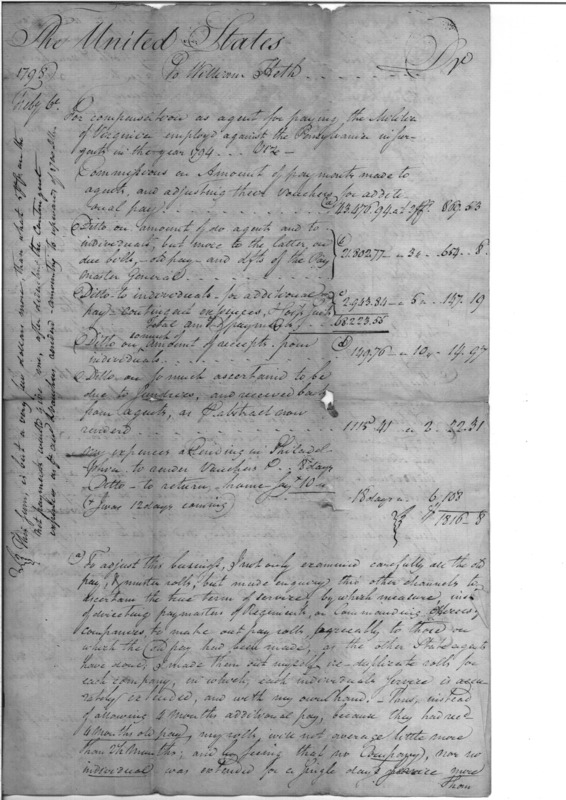 The United States
To William Heth Dr
1798
Feby 6.
For compensation as agent for paying the Militia
of Virginia employd against the Pensylvania insur-
gents in the year 1794
Commissions on Amount of payments made to
agents, and adjusting their Vouchers for additi-
onal pay (a) 43.476.94 at 2 869.53
Ditto on Amount of do agents and to
individuals, but more to the latter, on
due bills, old pay and of the Pay
Master General 21.802.77 3 654. 8
Ditto to individuals for additional
pay contingent expences, &
2943.84 5 147.19
Total amt of payments 68223.55
Ditto on amount of receipts from
individuals (d) 149.76 10 14.97
Ditto, on so much ascertained to be
due to Jundries, and received back
from agents, as abstract now
render'd 1115.41 2 22.31
my expences attending in Philadel-
phia to render Vouchers &c. 8 days
Ditto to return home say 10
18 days 6. 108
(I was 12 days coming)
1816. 8
This sum, is but a very few dollars more, than what on the
net payments would give me, after deducting the contingent
expences
(a) To adjust this bussiness, I not only examined carefully all the old
pay, & muster rolls, but made enquiry thro other channels to
ascertain the true term of service, by which measure, inst
of directing paymasters of Regiments, or Commanding Officers of
companies, to make out pay rolls, agreeably to those on
which the Old pay had been made, as the other State agents
have done, I made them out myself, duplicate rolls for
each company, in which, each individuals service is accu-
rately extended, and with my own hand. Thus, instead
of allowing 4 months additional pay, because they had recd
4 months old pay, my rolls, will not average little more
than 2½ months; and seeing that no Company, nor no
individual was extended for a single days service more
than